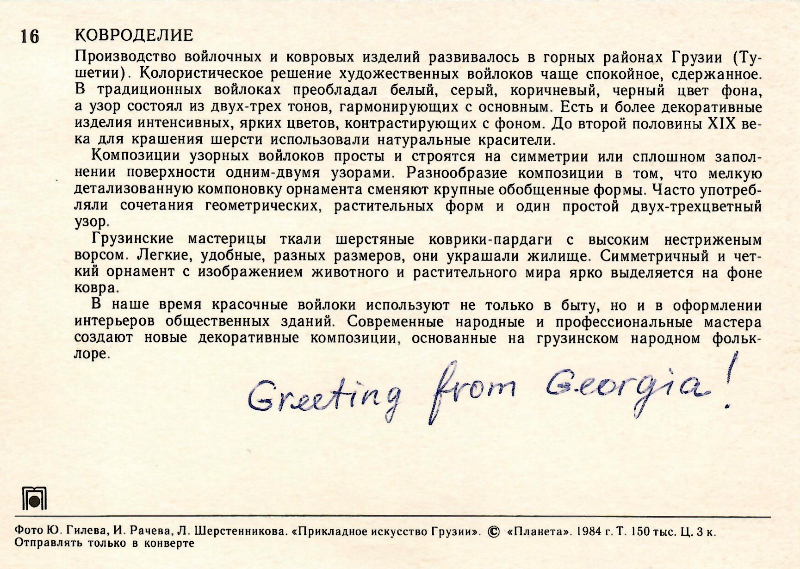 16 КОВРОДЕЛИЕ
Производство войлочных и ковровых изделий развивалось в горных районах Грузии (Ту-
шетии). Колористическое решение художественных войлоков чаще спокойное, сдержанное.
В традиционных войлоках преобладал белый, серый, коричневый, черный цвет фона,
а узор состоял из двух-трех тонов, гармонирующих с основным. Есть и более декоративные
изделия интенсивных, ярких цветов, контрастирующих с фоном. До второй половины XIX ве-
ка для крашения шерсти использовали натуральные красители.
Композиции узорных войлоков просты и строятся на симметрии или сплошном запол-
нении поверхности одним-двумя узорами. Разнообразие композиции в том, что мелкую
детализованную компоновку орнамента сменяют крупные обобщенные формы. Часто употреб-
ляли сочетания геометрических, растительных форм и один простой двух-трехцветный
узор.
Грузинские мастерицы ткали шерстяные коврики-пардаги с высоким нестриженым
ворсом. Легкие, удобные, разных размеров, они украшали жилище. Симметричный и чет-
кий орнамент с изображением животного и растительного мира ярко выделяется на фоне
ковра.
В наше время красочные войлоки используют не только в быту, но и в оформлении
интерьеров общественных зданий. Современные народные и профессиональные мастера
создают новые декоративные композиции, основанные на грузинском народном фольк-
лоре.
Greeting from Georgia!
Фото Ю. Гилева, И. Рачева, Л. Шерстенникова. «Прикладное искусство Грузии». © «Планета». 1984 г. Т. 150 тыс. Ц. 3 к.
Отправлять только в конверте